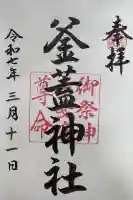 奉拝
釜蓋神社
御祭神
尊命
令和七年三月十一日